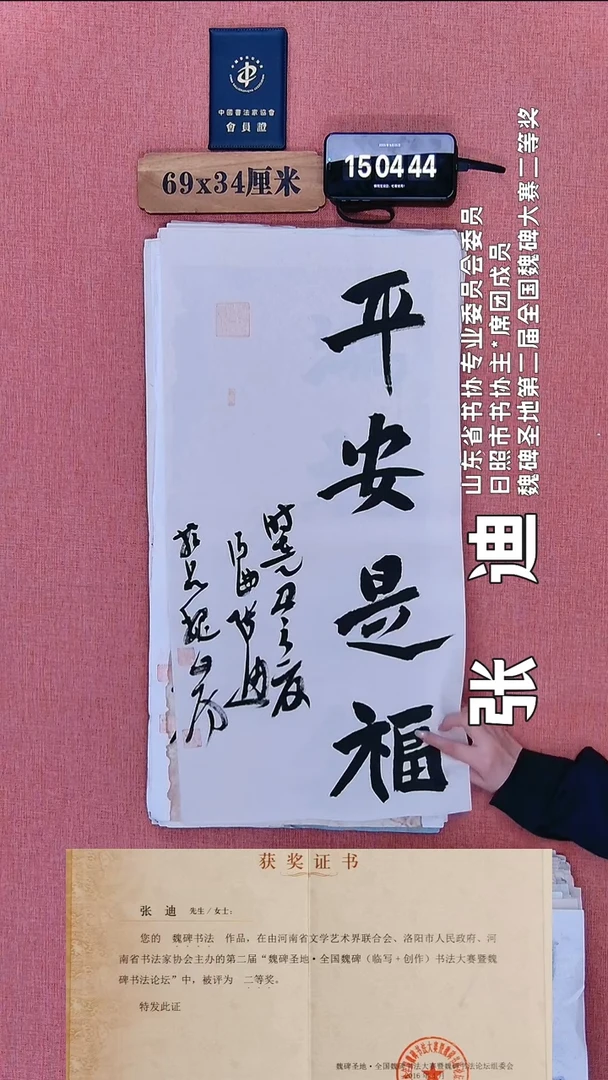 中國書法家協會
會員證
69x34厘米
15 04 44
平安是福
山东省书协专业委员会委员
日照市书协主*席团成员
魏碑圣地第二届全国魏碑大赛二等奖
张 迪
获奖证书
张 迪 先生/女士：
您的 魏碑书法 作品，在由河南省文学艺术界联合会、洛阳市人民政府、河
南省书法家协会主办的第二届“魏碑圣地·全国魏碑（临写+创作）书法大赛暨魏
碑书法论坛”中，被评为 二等奖。
特发此证
魏碑圣地·全国魏碑书法大赛暨魏碑书法论坛组委会